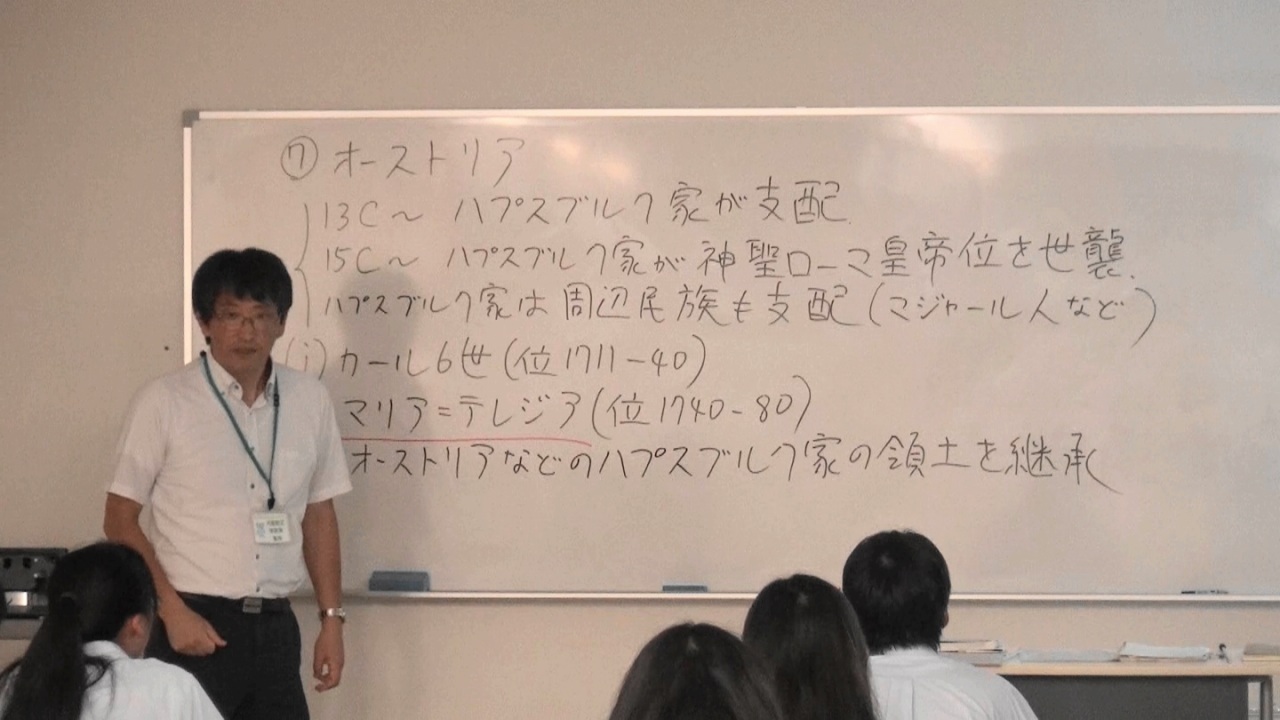 ⑦ オーストリア
13C～ ハプスブルク家が支配.
15C～ ハプスブルク家が神聖ローマ皇帝位を世襲.
ハプスブルク家は周辺民族も支配(マジャール人など)
(i) カール6世(位1711-40)
マリア=テレジア(位1740-80)
オーストリアなどのハプスブルク家の領土を継承